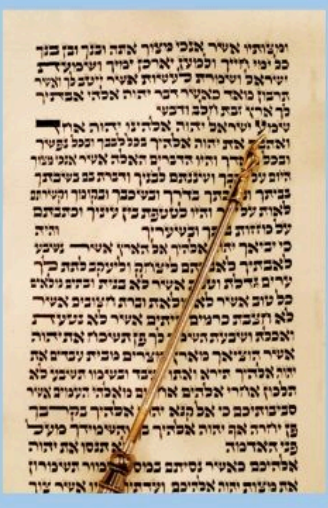 ומצותיו אשר אנכי מצוך אתה ובנך ובן בנך
כל ימי חייך ולמען יארכן ימיך ושמעת
ישראל ושמרת לעשות אשר ייטב לך ואשר
תרבון מאד כאשר דבר יהוה אלהי אבתיך
לך ארץ זבת חלב ודבש
שמע ישראל יהוה אלהינו יהוה אחד
ואהבת את יהוה אלהיך בכל לבבך ובכל נפשך
ובכל מאדך והיו הדברים האלה אשר אנכי מצוך
היום על לבבך ושננתם לבניך ודברת בם בשבתך
בביתך בדרך ובשכבך ובקומך וקשרתם
לאות על ידך והיו לטטפת בין עיניך וכתבתם
על מזזות ובשעריך והיה
כי יביאך יהוה אלהיך אל הארץ אשר נשבע
לאבתיך ליצחק וליעקב לתת לך
ערים גדלת אשר לא בנית ובתים מלאים
כל טוב אשר לא מלאת וברת חצובים אשר
לא חצבת כרמים וזיתים אשר לא נטעת
ואכלת ושבעת השמר לך פן תשכח את יהוה
אשר הוציאך מארץ מצרים מבית עבדים את
יהוה אלהיך תירא ואתו תעבד ובשמו תשבע לא
תלכון אחרי אלהים מאלהי העמים אשר
סביבותיכם כי אל קנא יהוה אלהיך בקרבך
פן יחרה אף יהוה אלהיך והשמידך מעל
פני האדמה תנסו את יהוה
אלהיכם כאשר נסיתם שמור תשמרון
את מצות יהוה אלהיכם אשר צוך